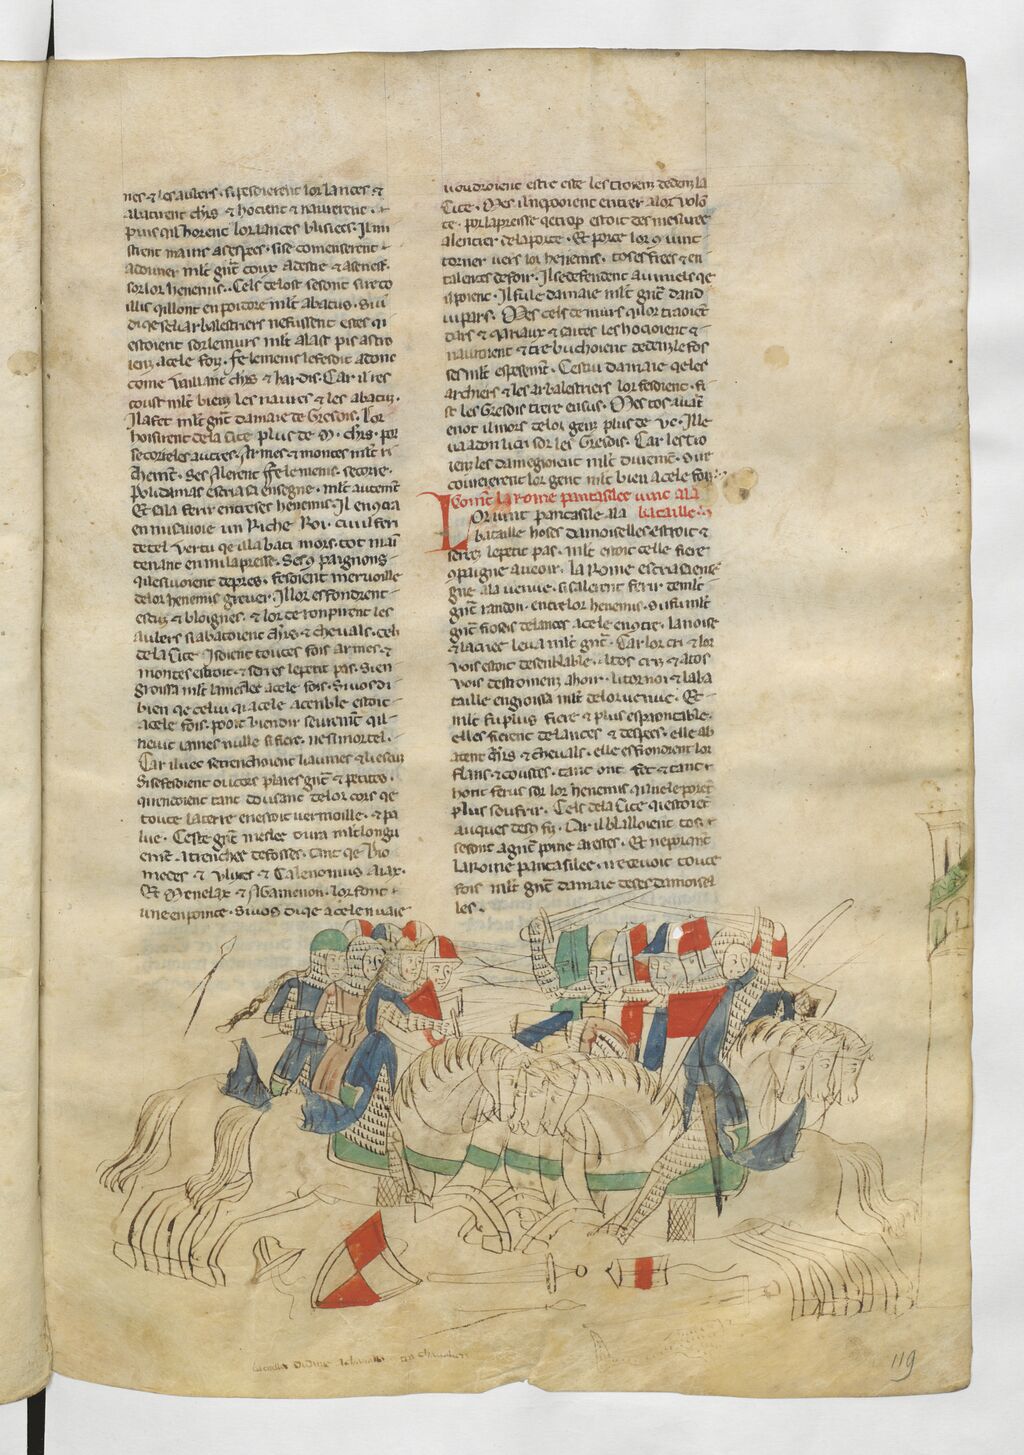 nes & les auters. si pesdierent lor lances &
abatirent chrs & hocient & naurerent. &
puis qil horent lor lances brisees. Il mi
strent mains as espees. si se comenserent
a doner mlt gnt coux a destre & a senest.
sor lor henemis. Cels de lost se sont
illis qil lont en po dore mlt abatus.
di qe se li arbalestriers ne fussent estes qi
estoient sor les murs mlt a la st pis as troi
iens. a cele foiz. felemenis le fesoit adonc
come vaillant chrs & hardis. Car il res
coust mlt bien les naures & les abatuz.
Il a fet mlt gnt damaie de Gresois. Lor
hoisirent de la Cite plus de .M. chrs. por
secorre les autres. Armes & montes mlt ri
chement. Ses alerent felemenis. secorre.
Polidamas escria sensegne. mlt autement
Et si la ferir entre ses henemis. Il encontra
en mi sa voie un Riche Roi. cui il feri
de tel vertu qe il abati mors tot main
tenant en mi la presse. Ses conpaignons
qil esivoient de pres. fesoient mervoille
de lor henemis grever. Il lor esfondrent
escuz & & lor de ronpirent les
aubers si abatoient chrs & chevals. Cels
de la Cite isoient toutes fois armes &
montes estroit & seres le petit pas. Si en
grossa mlt la meslee a cele fois. Si vos di
bien qe celui qi a cele asenble estoit
a cele fois. pooit bien dir seurement qil
ne vit iames nulle si fiere. ne si mortel.
Car iluec se trenchoient hiaumes &
Si se fesoient outors plaies gnt & petites.
qui rendoient tant dou sanc de lor cors qe
toute la terre en estoit vermoille. & pa
lue. Ceste gnt meslee dura mlt longu
ement. a trenchee de fosses. tant qe Dio
medes & Ulixes & Talemonius Aiax.
Et Menelax & Agamenon. lor font
une enpointe. Si vos di qe a cele nvaie
voudroient estre este les troiens dedens la
Cite. Mes il ne pooient entrer a lor volon
te. por la presse qe trop estoit desmesuree
a lentrer de la porte. Et por ce lor convint
torner vers lor henemis. totes fiees & en
talentes de foir. Il se defendent au miels qe
il poient. Il fu le damaie mlt gnt dand
ui pars. Mes cels de murs qi lor traoient
dars & qariaux & saites les hocioient &
nauroient & trebuchoient dedens le fos
ses mlt espesement. Cestui damaie qe les
archiers & les arbalestriers lor fesoient. fi
st les Gresois trere ensus. Mes tos avant
en ot il mors de lor gens plus de .Vc. Ille
va adonc li cri sor les Gresois. Car les tro
iens les damegioient mlt durement. Si re
covrerent lor gent mlt bien a cele foiz.
Coment la Roine pantasilee vint a la
bataille.
Lor vint pantasilee a la
bataille hoses damoiselles estroit &
serees le petit pas. mlt estoit celle fiere
conpaigne a veoir. La Roine escria sensei
gne a la venue. si salerent ferir de mlt
gnt randon. entre lor henemis. Si fu mlt
gnt frois de lances a cele encontre. La noise
& la cree leva mlt gnt. Car lor cri & lor
vois estoit desenblable. a tos criz & a tos
vois destroiens ahoir. li tornoi & la ba
taille engrossa mlt de lor venue. Et
mlt fu plus fiere & plus espaontable.
elles fierent de lances & despees. elle ab
atent chrs & chevals. elle esfrondrent lor
flans & costes. tant ont fet & tant
hont ferus sor lor henemis qil ne le poret
plus soufrir. Cels de la Cite qi estoiet
auques desconfiz. Car il balloient tos.
se sont a gnt poine arestes. Et ne porqant
la Roine pantasilee. recevoit toute
fois mlt gnt damaie de ses damoisel
les.
119